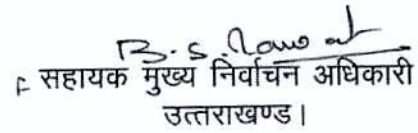 B.S. Rawat
सहायक मुख्य निर्वाचन अधिकारी
उत्तराखण्ड।